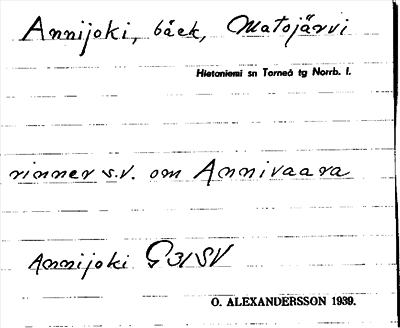 Annijoki, bäck, Matojärvi
Hietaniemi sn Torneå tg Norrb. l.
rinner s.v. om Annivaara
Annijoki G 31 SV
O. ALEXANDERSSON 1939.